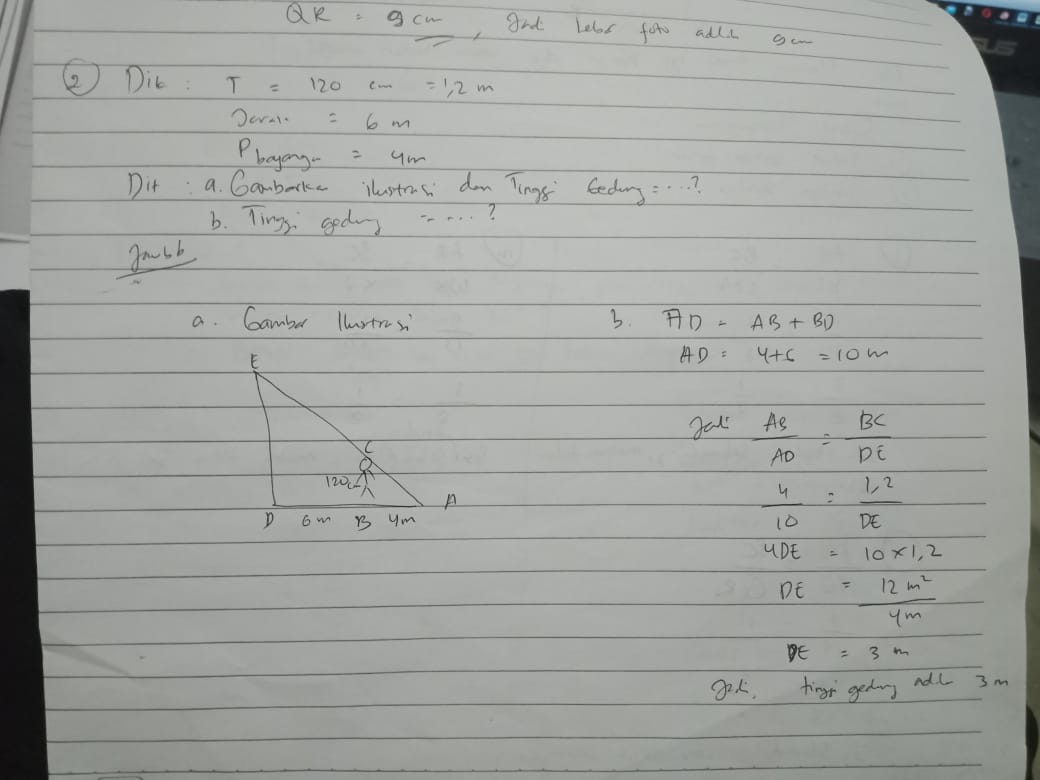 QR = 9 cm, Jadi lebar foto adlh 9 cm
② Dik : T = 120 cm = 1,2 m
Jarak = 6 m
P bayangan = 4m
Dit : a. Gambarka ilustrasi dan Tinggi Gedung = ...?
b. Tinggi gedung = ....?
Jawab
a. Gambar Ilustrasi
E
C
120cm
D 6m B 4m A
b. AD = AB + BD
AD = 4+6 = 10 m
Jadi AB/AD = BC/DE
4/10 = 1,2/DE
4DE = 10 x 1,2
DE = 12 m²/4m
DE = 3 m
Jadi, tinggi gedung adlh 3 m
SUS